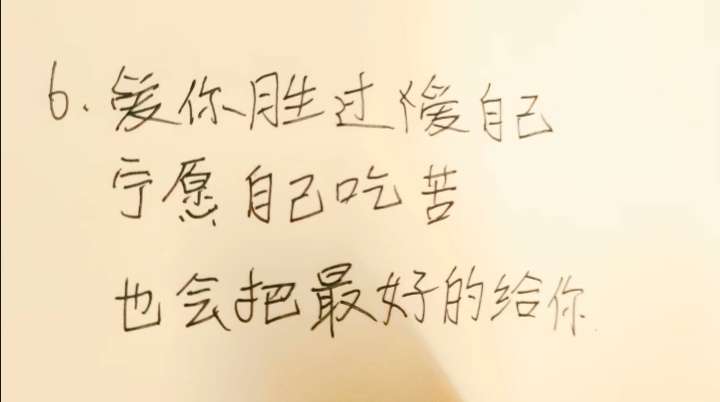 6. 爱你胜过爱自己
宁愿自己吃苦
也会把最好的给你